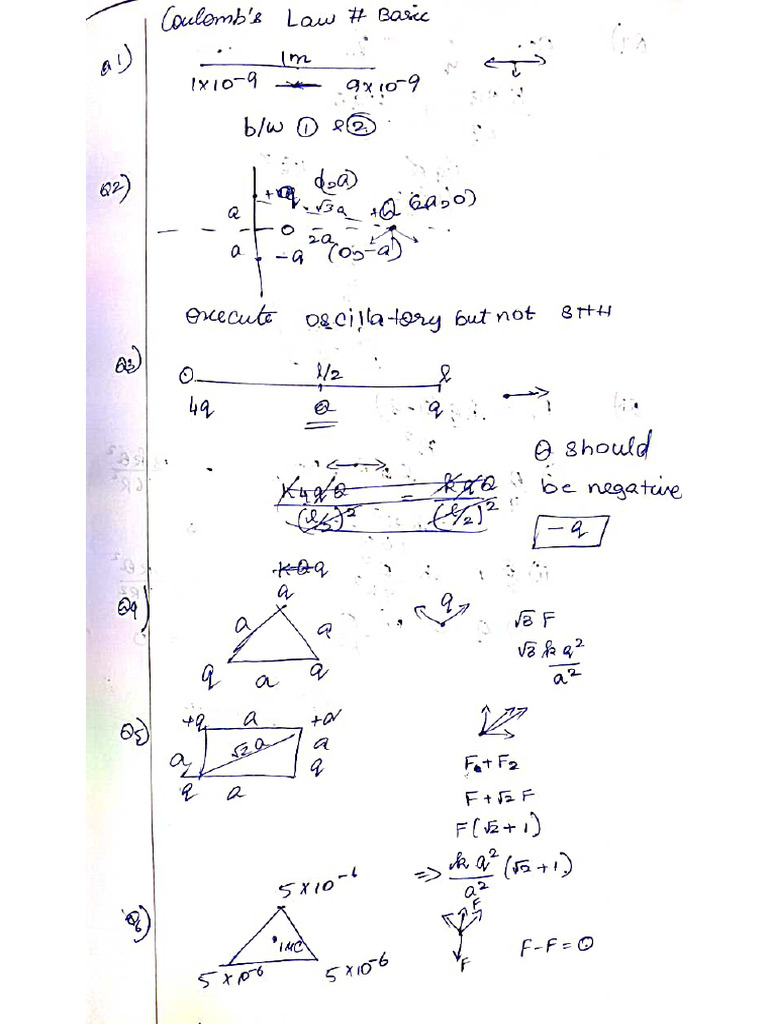 Coulomb's Law # Basic
Q1)
1m
1×10-9 9×10-9
b/w ① & ②
Q2)
a √3a +Q (2a,0)
O
2a
a -q (0,-a)
execute oscillatory but not SHM
Q3)
O l/2 l
4q Q q
Q should
be negative
K4qQ/(l/2)² = kqQ/(l/2)²
-q
KQq
Q4)
q q
a a
√3 F
√3 k q²/a²
q a q
Q5)
+q a +q
a √2a a
q a q
F + F2
F + √2 F
F(√2 + 1)
=> k q²/a² (√2 + 1)
5 × 10-6
Q6)
F
1MC
F
F-F = 0
5 × 10-6 5 × 10-6